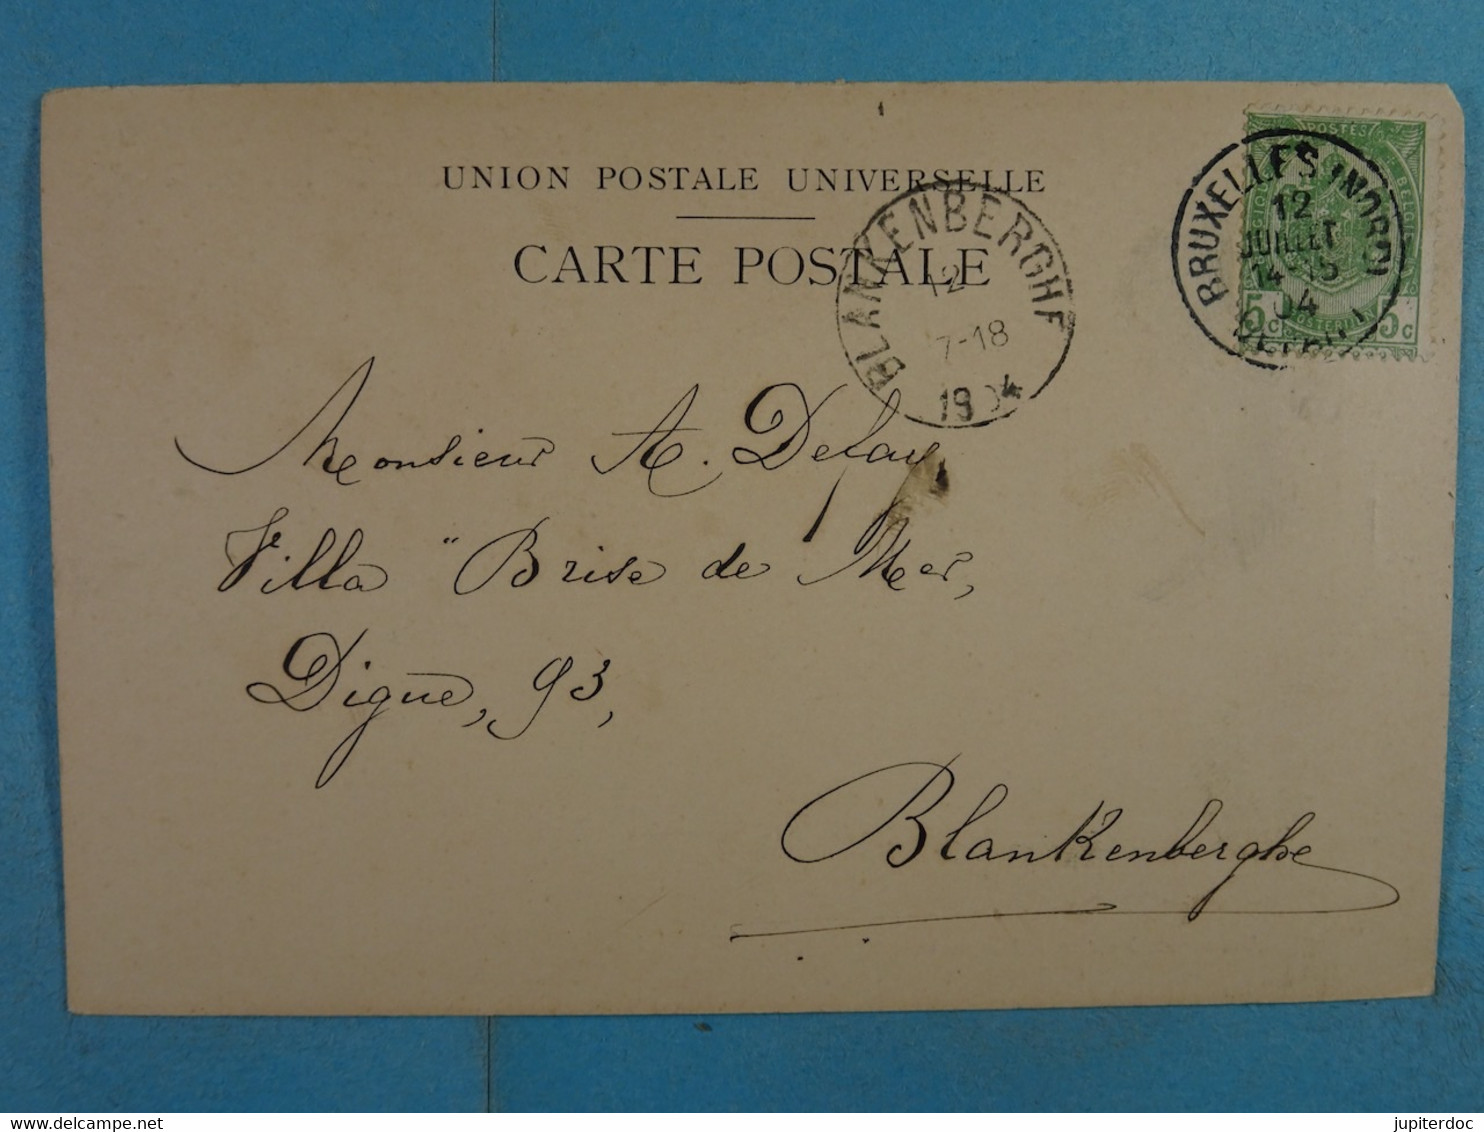 UNION POSTALE UNIVERSELLE
CARTE POSTALE
BLANKENBERGHE
12
7-18
1904
POSTES
BRUXELLES (NORD)
12
JUILLET
14-15
04
DÉPART
5c 5c
Monsieur A. Delay
Villa "Brise de Mer,
Digue, 93,
Blankenberghe
jupiterdoc